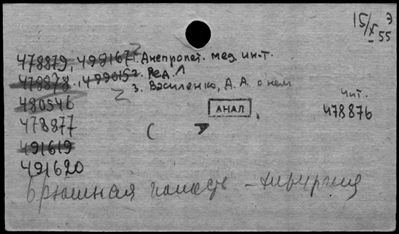 15/X 55 Э
478879, 499167. Днепропет. мед. ин-т.
478878. 499015? Ред. Л
480546 3. Василенко, А. А. о нем
чит.
АНАЛ 478876
478877
491619
491620
Брюшная полость - хирургия